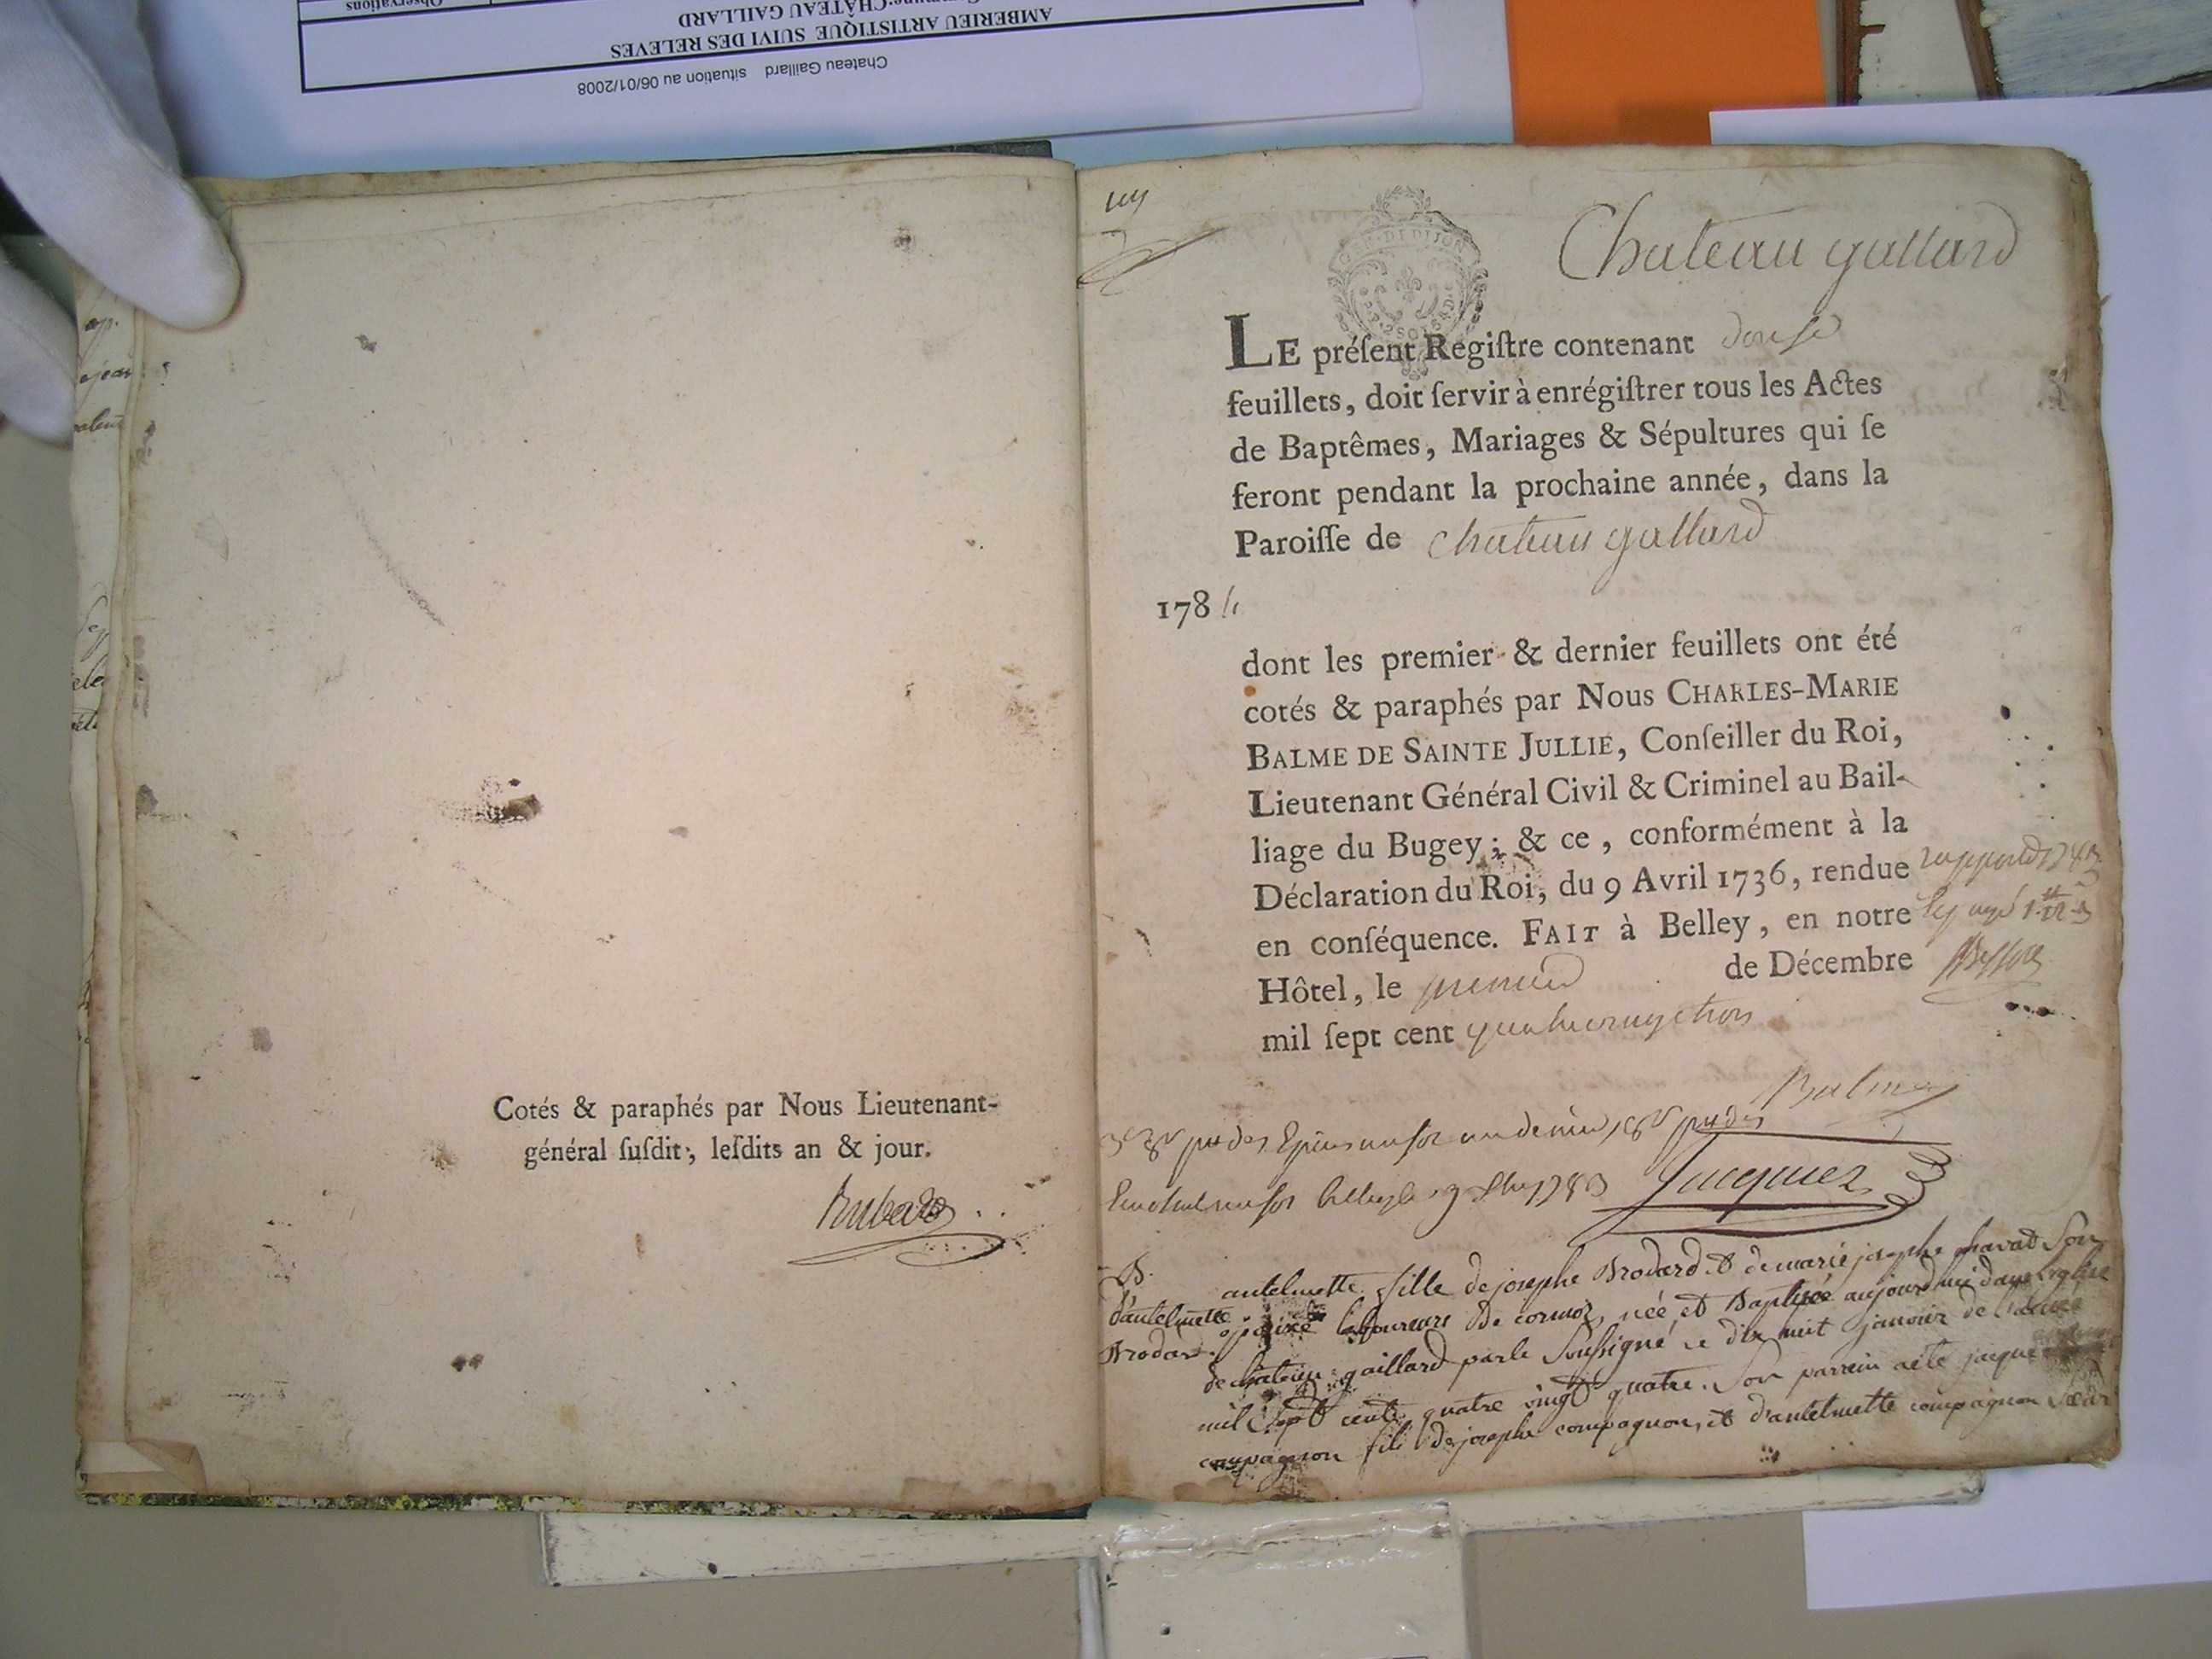 Observations
Commune: CHÂTEAU GAILLARD
AMBERIEU ARTISTIQUE SUIVI DES RELEVES
Chateau Gaillard situation au 06/01/2008
Cotés & paraphés par Nous Lieutenant-
général ſuſdit, leſdits an & jour.
Chateau gallard
LE préſent Regiſtre contenant douse
feuillets, doit ſervir à enrégiſtrer tous les Actes
de Baptêmes, Mariages & Sépultures qui ſe
feront pendant la prochaine année, dans la
Paroiſſe de chateau gallard
1784
dont les premier & dernier feuillets ont été
cotés & paraphés par Nous CHARLES-MARIE
BALME DE SAINTE JULLIE, Conſeiller du Roi,
Lieutenant Général Civil & Criminel au Bail-
liage du Bugey; & ce, conformément à la
Déclaration du Roi, du 9 Avril 1736, rendue
en conſéquence. FAIT à Belley, en notre
Hôtel, le premier de Décembre
mil ſept cent quatre vingt trois
Balme
Jacquez
B.
d'antelmette
Brodard.
antelmette fille de josephe Brodard et de marie josephe chavat Son
laboureurs De cormoz, née et Baptisée aujourdhui dans l'eglise
de chateau gaillard par le Soussigné ce dix huit janvier de l'année
mil Sept cents quatre vingt quatre. Son parrein a été jaque
compagnon fils de josephe compagnon, et d'antelmette compagnon Sœur